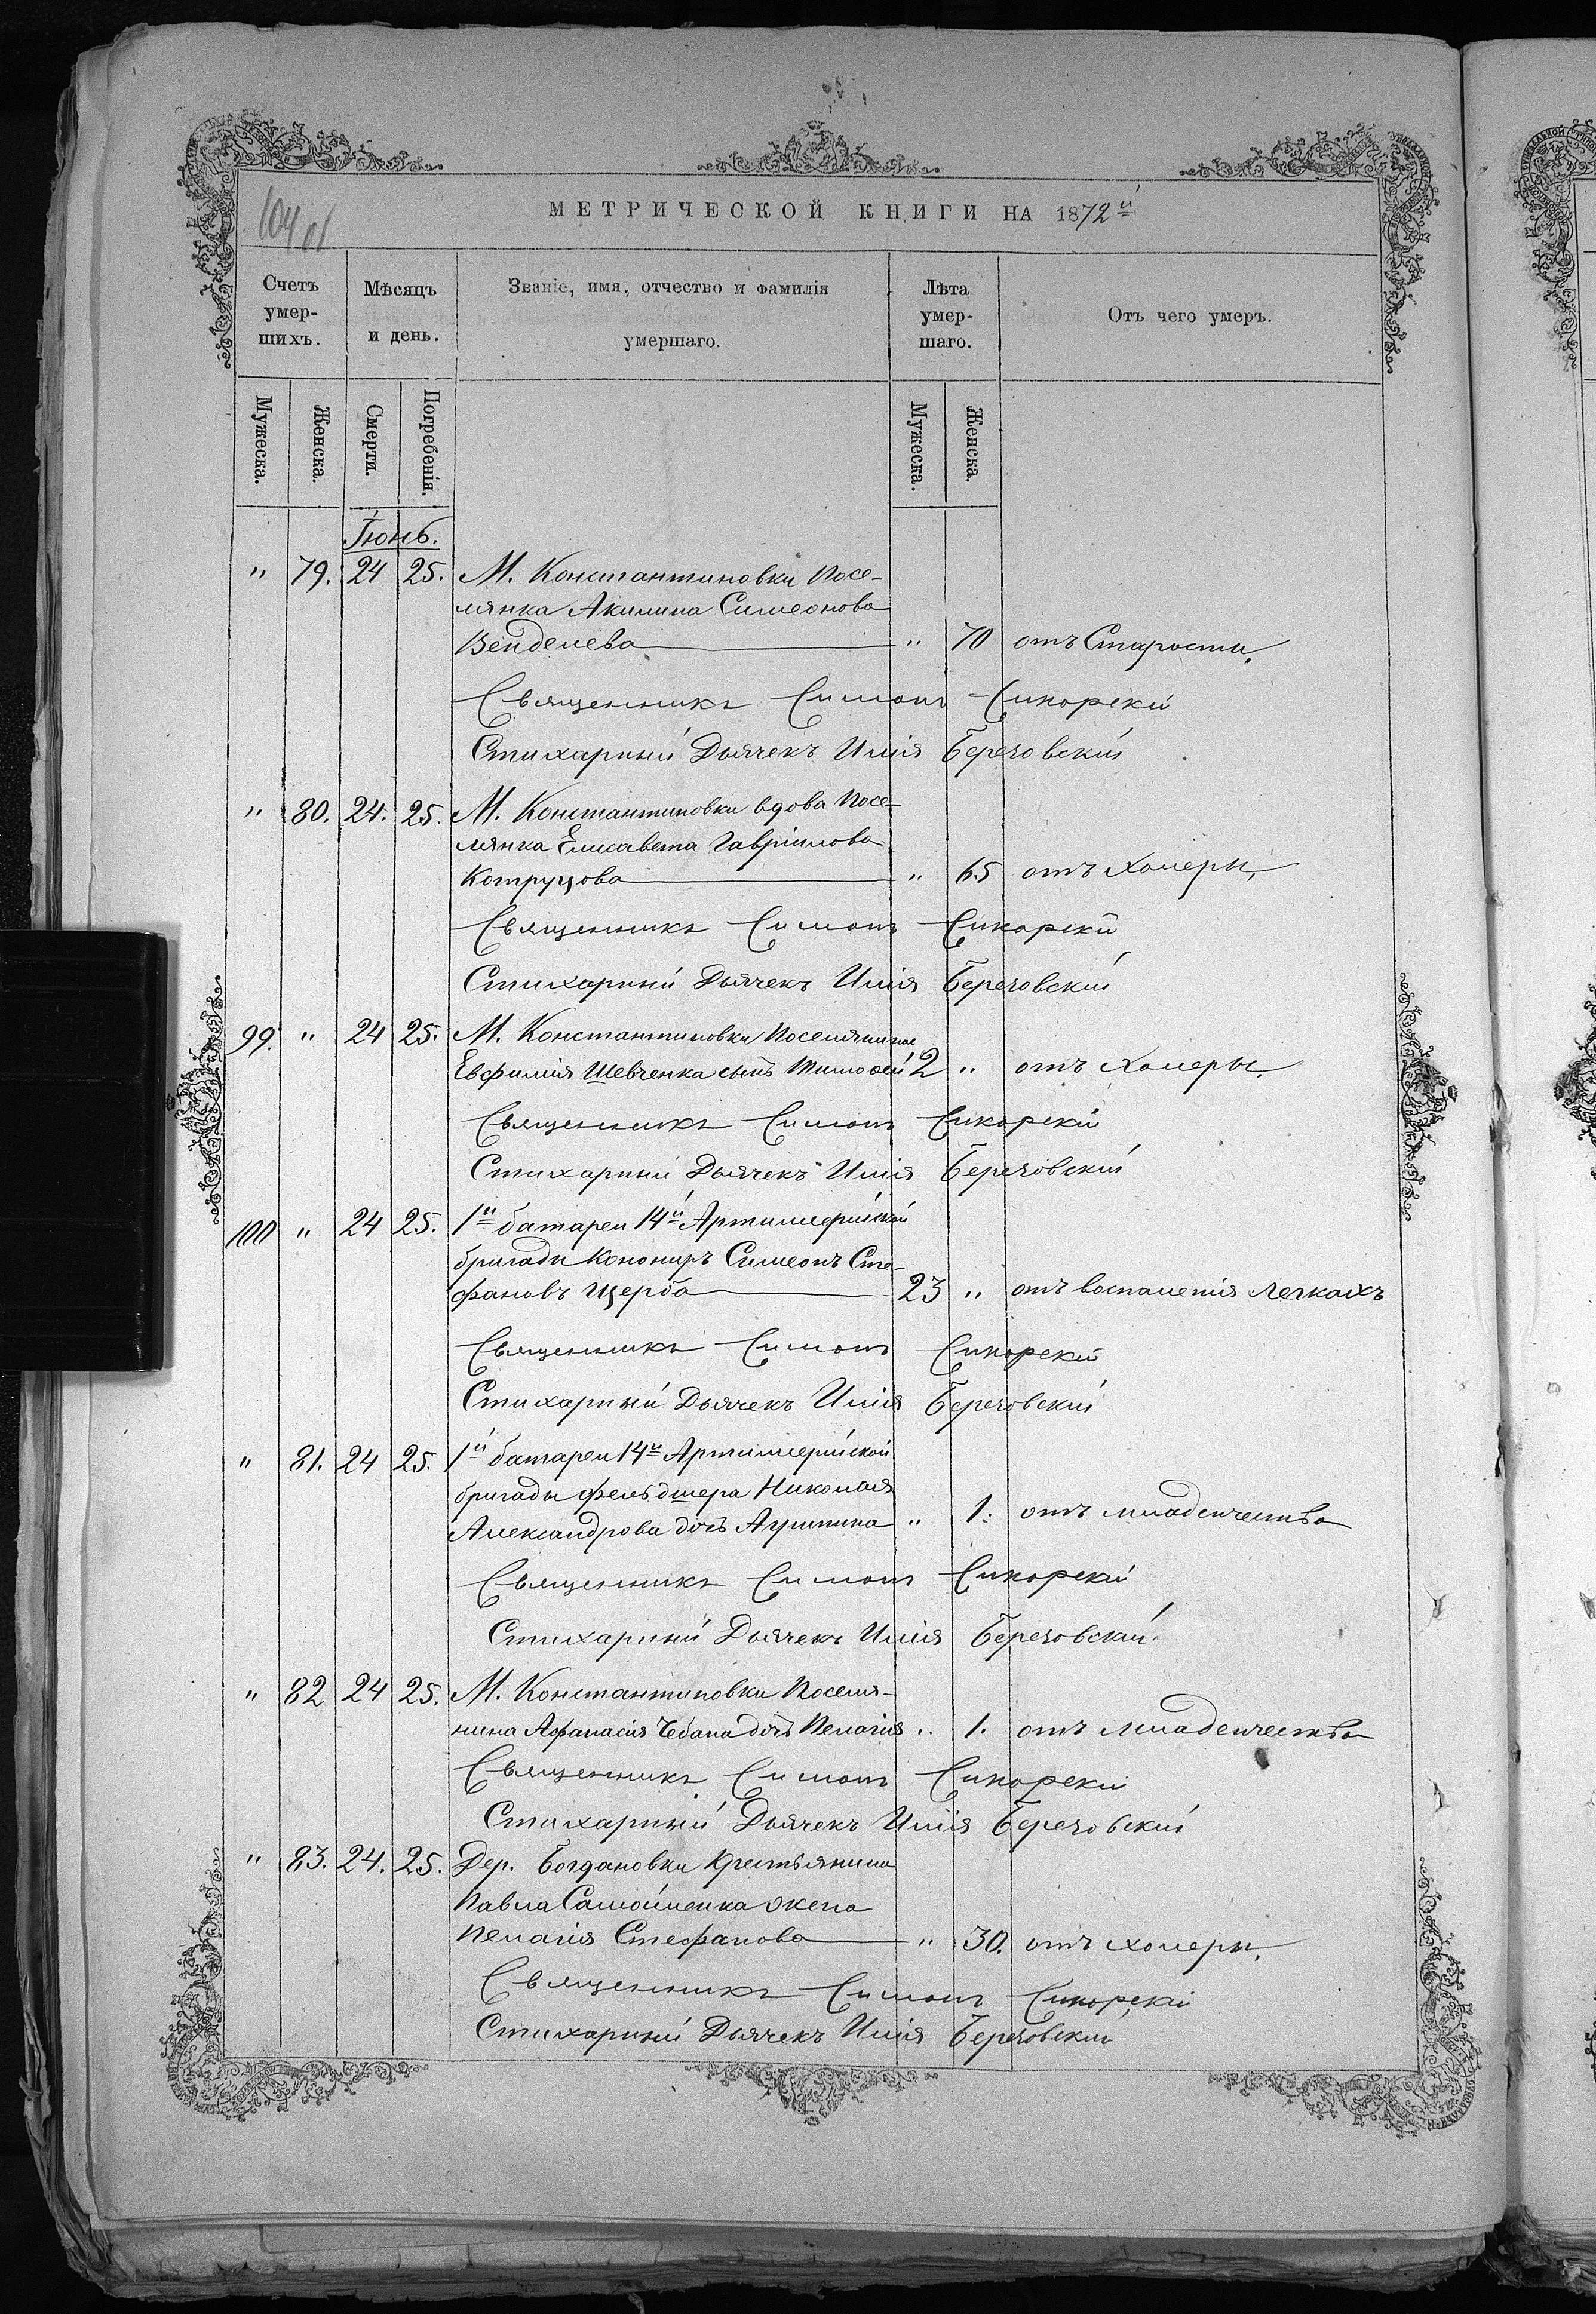 104 об
МЕТРИЧЕСКОЙ КНИГИ НА 1872й
Счетъ умер-шихъ.
Мѣсяцъ и день.
Званіе, имя, отчество и фамилія умершаго.
Лѣта умер-шаго.
Отъ чего умеръ.
Мужеска. Женска. Смерти. Погребенія. Мужеска. Женска.
Іюнь.
" 79. 24 25. М. Константиновки посе-
лянка Акилина Симеонова
Венделева " 70 отъ Старости.
Священникъ Симонъ Сикорскій
Стихарный Дьячекъ Илія Березовскій
" 80. 24. 25. М. Константиновки вдова посе-
лянка Елисавета Гавріилова
Котруцова " 65 отъ холеры.
Священникъ Симонъ Сикорскій
Стихарный Дьячекъ Илія Березовскій
99. " 24 25. М. Константиновки поселянина
Евфимія Шевченка сынъ Тимофей 2 " отъ холеры.
Священникъ Симонъ Сикорскій
Стихарный Дьячекъ Илія Березовскій
100 " 24 25. 1й батареи 14й Артиллерійской
бригады Конониръ Симеонъ Сте-
фановъ Щерба 23 " отъ воспаленія легкихъ
Священникъ Симонъ Сикорскій
Стихарный Дьячекъ Илія Березовскій
" 81. 24 25. 1й батареи 14й Артиллерійской
бригады фельдшера Николая
Александрова дочь " 1. отъ младенчества
Священникъ Симонъ Сикорскій
Стихарный Дьячекъ Илія Березовскій.
" 82 24 25. М. Константиновки поселя-
нина Афанасія Чебана дочь Пелагія " 1. отъ младенчества
Священникъ Симонъ Сикорскій
Стихарный Дьячекъ Илія Березовскій
" 83. 24. 25. Дер. Богдановки крестьянина
Павла Самойленка жена
Пелагія Стефанова " 30. отъ холеры.
Священникъ Симонъ Сикорскій
Стихарный Дьячекъ Илія Березовскій